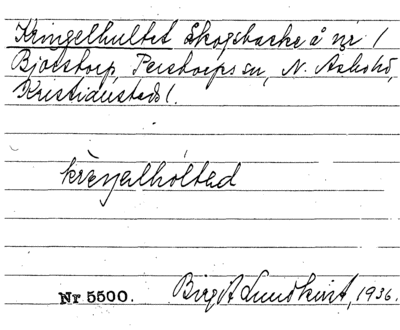 Kringelhultet Skogsbacke å nr 1
Bjöcstorp, Perstorps sn, N. Åsbohd,
Kristianstads l.
Nr 5500. Birgit Lundkvist, 1936.